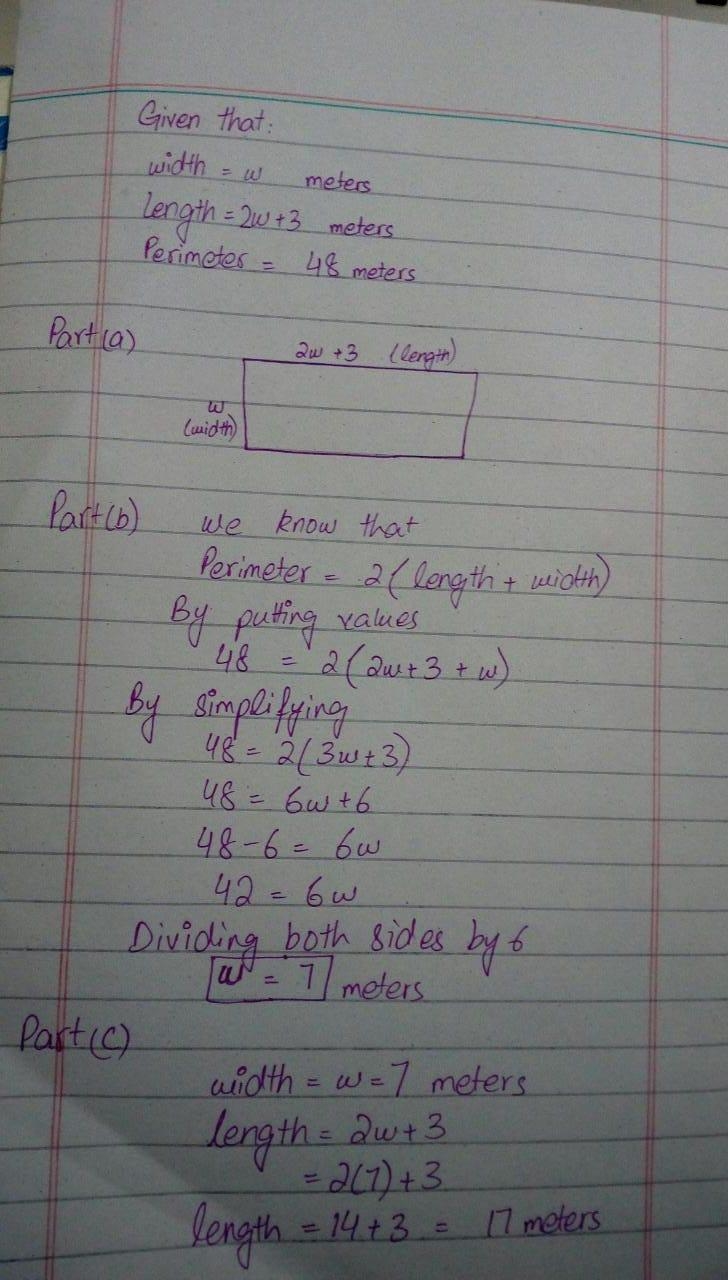 Given that:
width = w meters
length = 2w+3 meters
Perimeter = 48 meters
Part(a)
2w +3 (length)
w
(width)
Part(b) we know that
Perimeter = 2(length + width)
By putting values
48 = 2(2w+3 + w)
By simplifying
48 = 2(3w+3)
48 = 6w+6
48-6 = 6w
42 = 6w
Dividing both sides by 6
w = 7 meters
Part(C)
width = w = 7 meters
length = 2w+3
= 2(7)+3
length = 14+3 = 17 meters